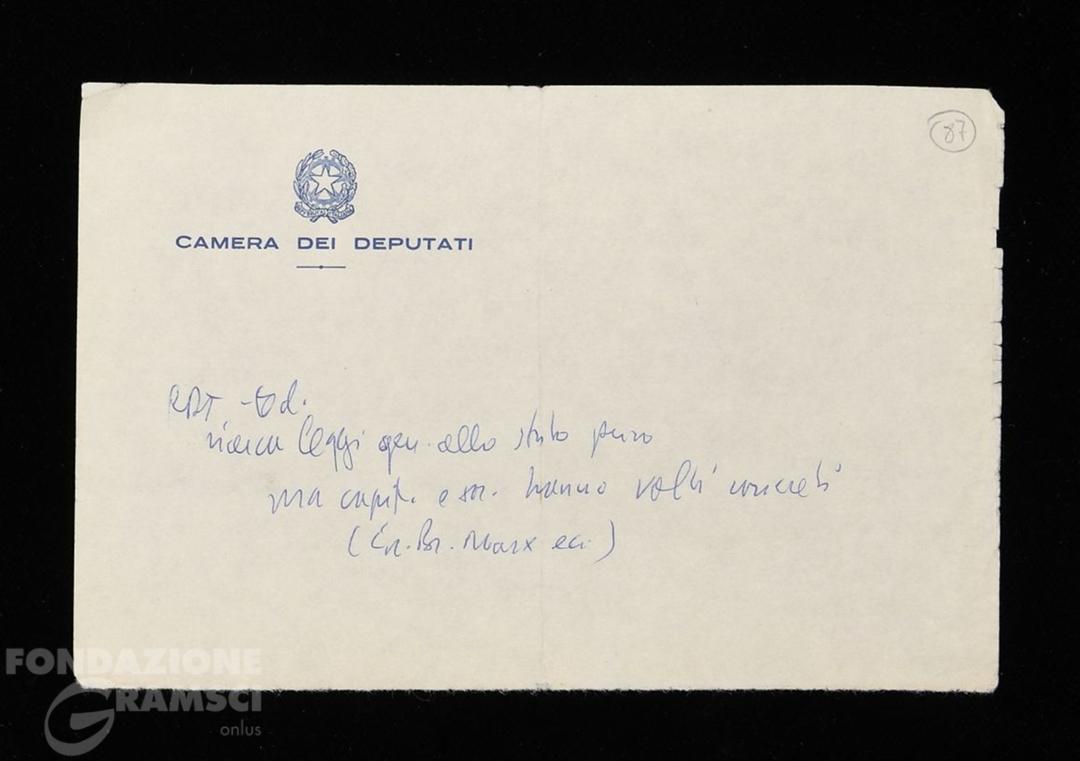 87
CAMERA DEI DEPUTATI
ricerca leggi gen. allo stato puro
ma capit. e soc. hanno volti concreti
Marx ecc.)
FONDAZIONE
GRAMSCI
onlus